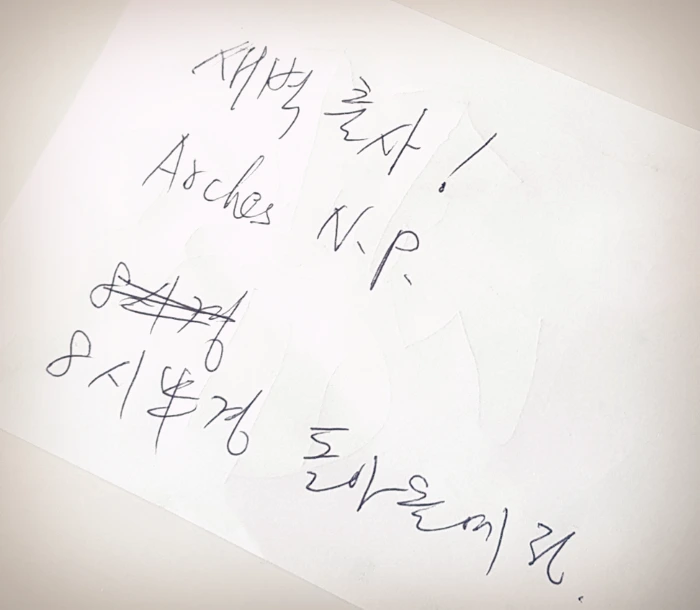 새벽 출사!
Arches N.P.
8시경
8시半경 돌아올 예정.